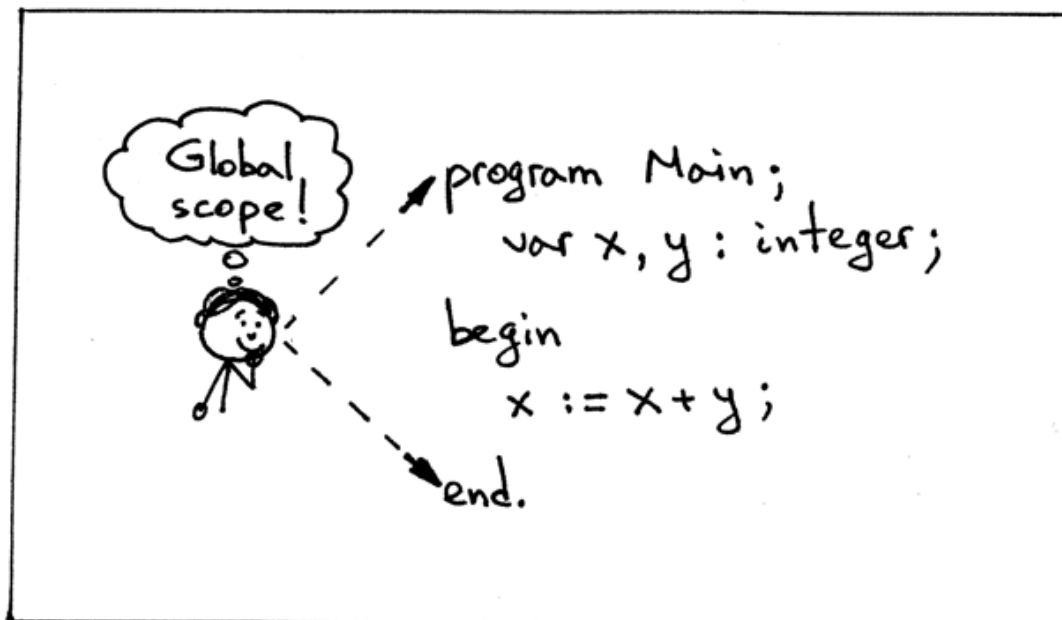 Global
scope!
program Main;
var x, y : integer;
begin
x := x + y;
end.